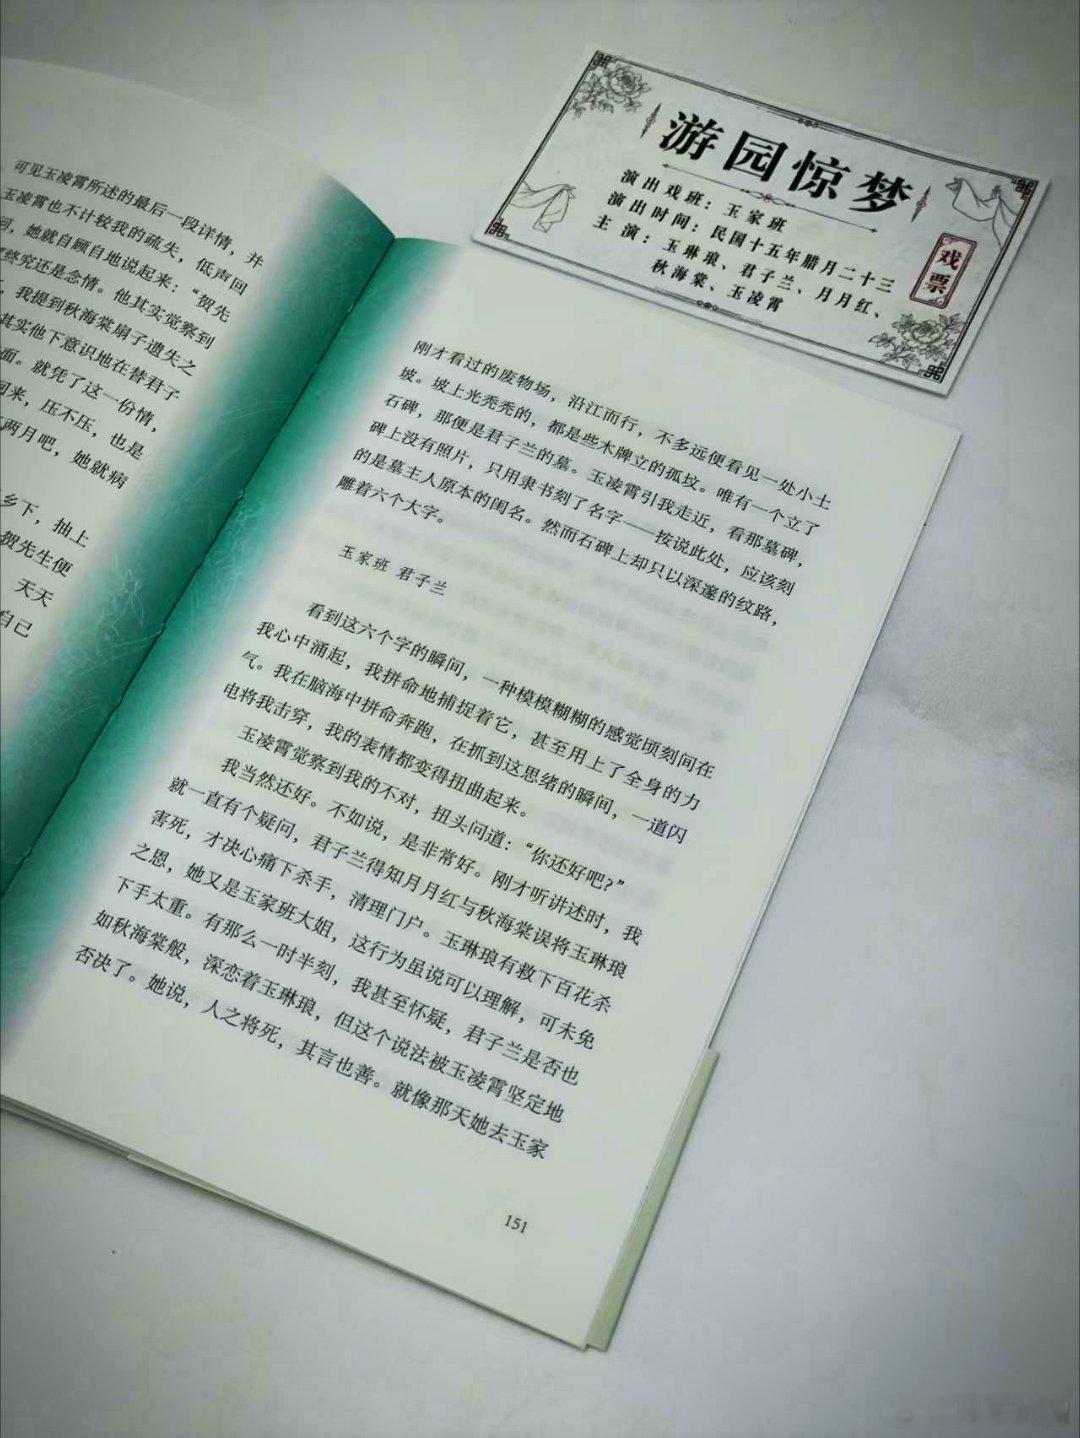 可见玉凌霄所述的最后一段详情，并
玉凌霄也不计较我的疏失，低声回
她就自顾自地说起来：“贺先
终究还是念情。他其实觉察到
我提到秋海棠扇子遗失之
其实他下意识地在替君子
面。就凭了这一份情，
回来，压不压，也是
两月吧，她就病
乡下，抽上
贺先生便
天天
自己
游园惊梦
演出戏班：玉家班
演出时间：民国十五年腊月二十三
主演：玉琳琅、君子兰、月月红、
秋海棠、玉凌霄
戏票
刚才看过的废物场，沿江而行，不多远便看见一处小土
坡。坡上光秃秃的，都是些木牌立的孤坟。唯有一个立了
石碑，那便是君子兰的墓。玉凌霄引我走近，看那墓碑，
碑上没有照片，只用隶书刻了名字——按说此处，应该刻
的是墓主人原本的闺名。然而石碑上却只以深邃的纹路，
雕着六个大字。
玉家班 君子兰
看到这六个字的瞬间，一种模模糊糊的感觉顷刻间在
我心中涌起，我拼命地捕捉着它，甚至用上了全身的力
气。我在脑海中拼命奔跑，在抓到这思绪的瞬间，一道闪
电将我击穿，我的表情都变得扭曲起来。
玉凌霄觉察到我的不对，扭头问道：“你还好吧？”
我当然还好。不如说，是非常好。刚才听讲述时，我
就一直有个疑问，君子兰得知月月红与秋海棠误将玉琳琅
害死，才决心痛下杀手，清理门户。玉琳琅有救下百花杀
之恩，她又是玉家班大姐，这行为虽说可以理解，可未免
下手太重。有那么一时半刻，我甚至怀疑，君子兰是否也
如秋海棠般，深恋着玉琳琅，但这个说法被玉凌霄坚定地
否决了。她说，人之将死，其言也善。就像那天她去玉家
151